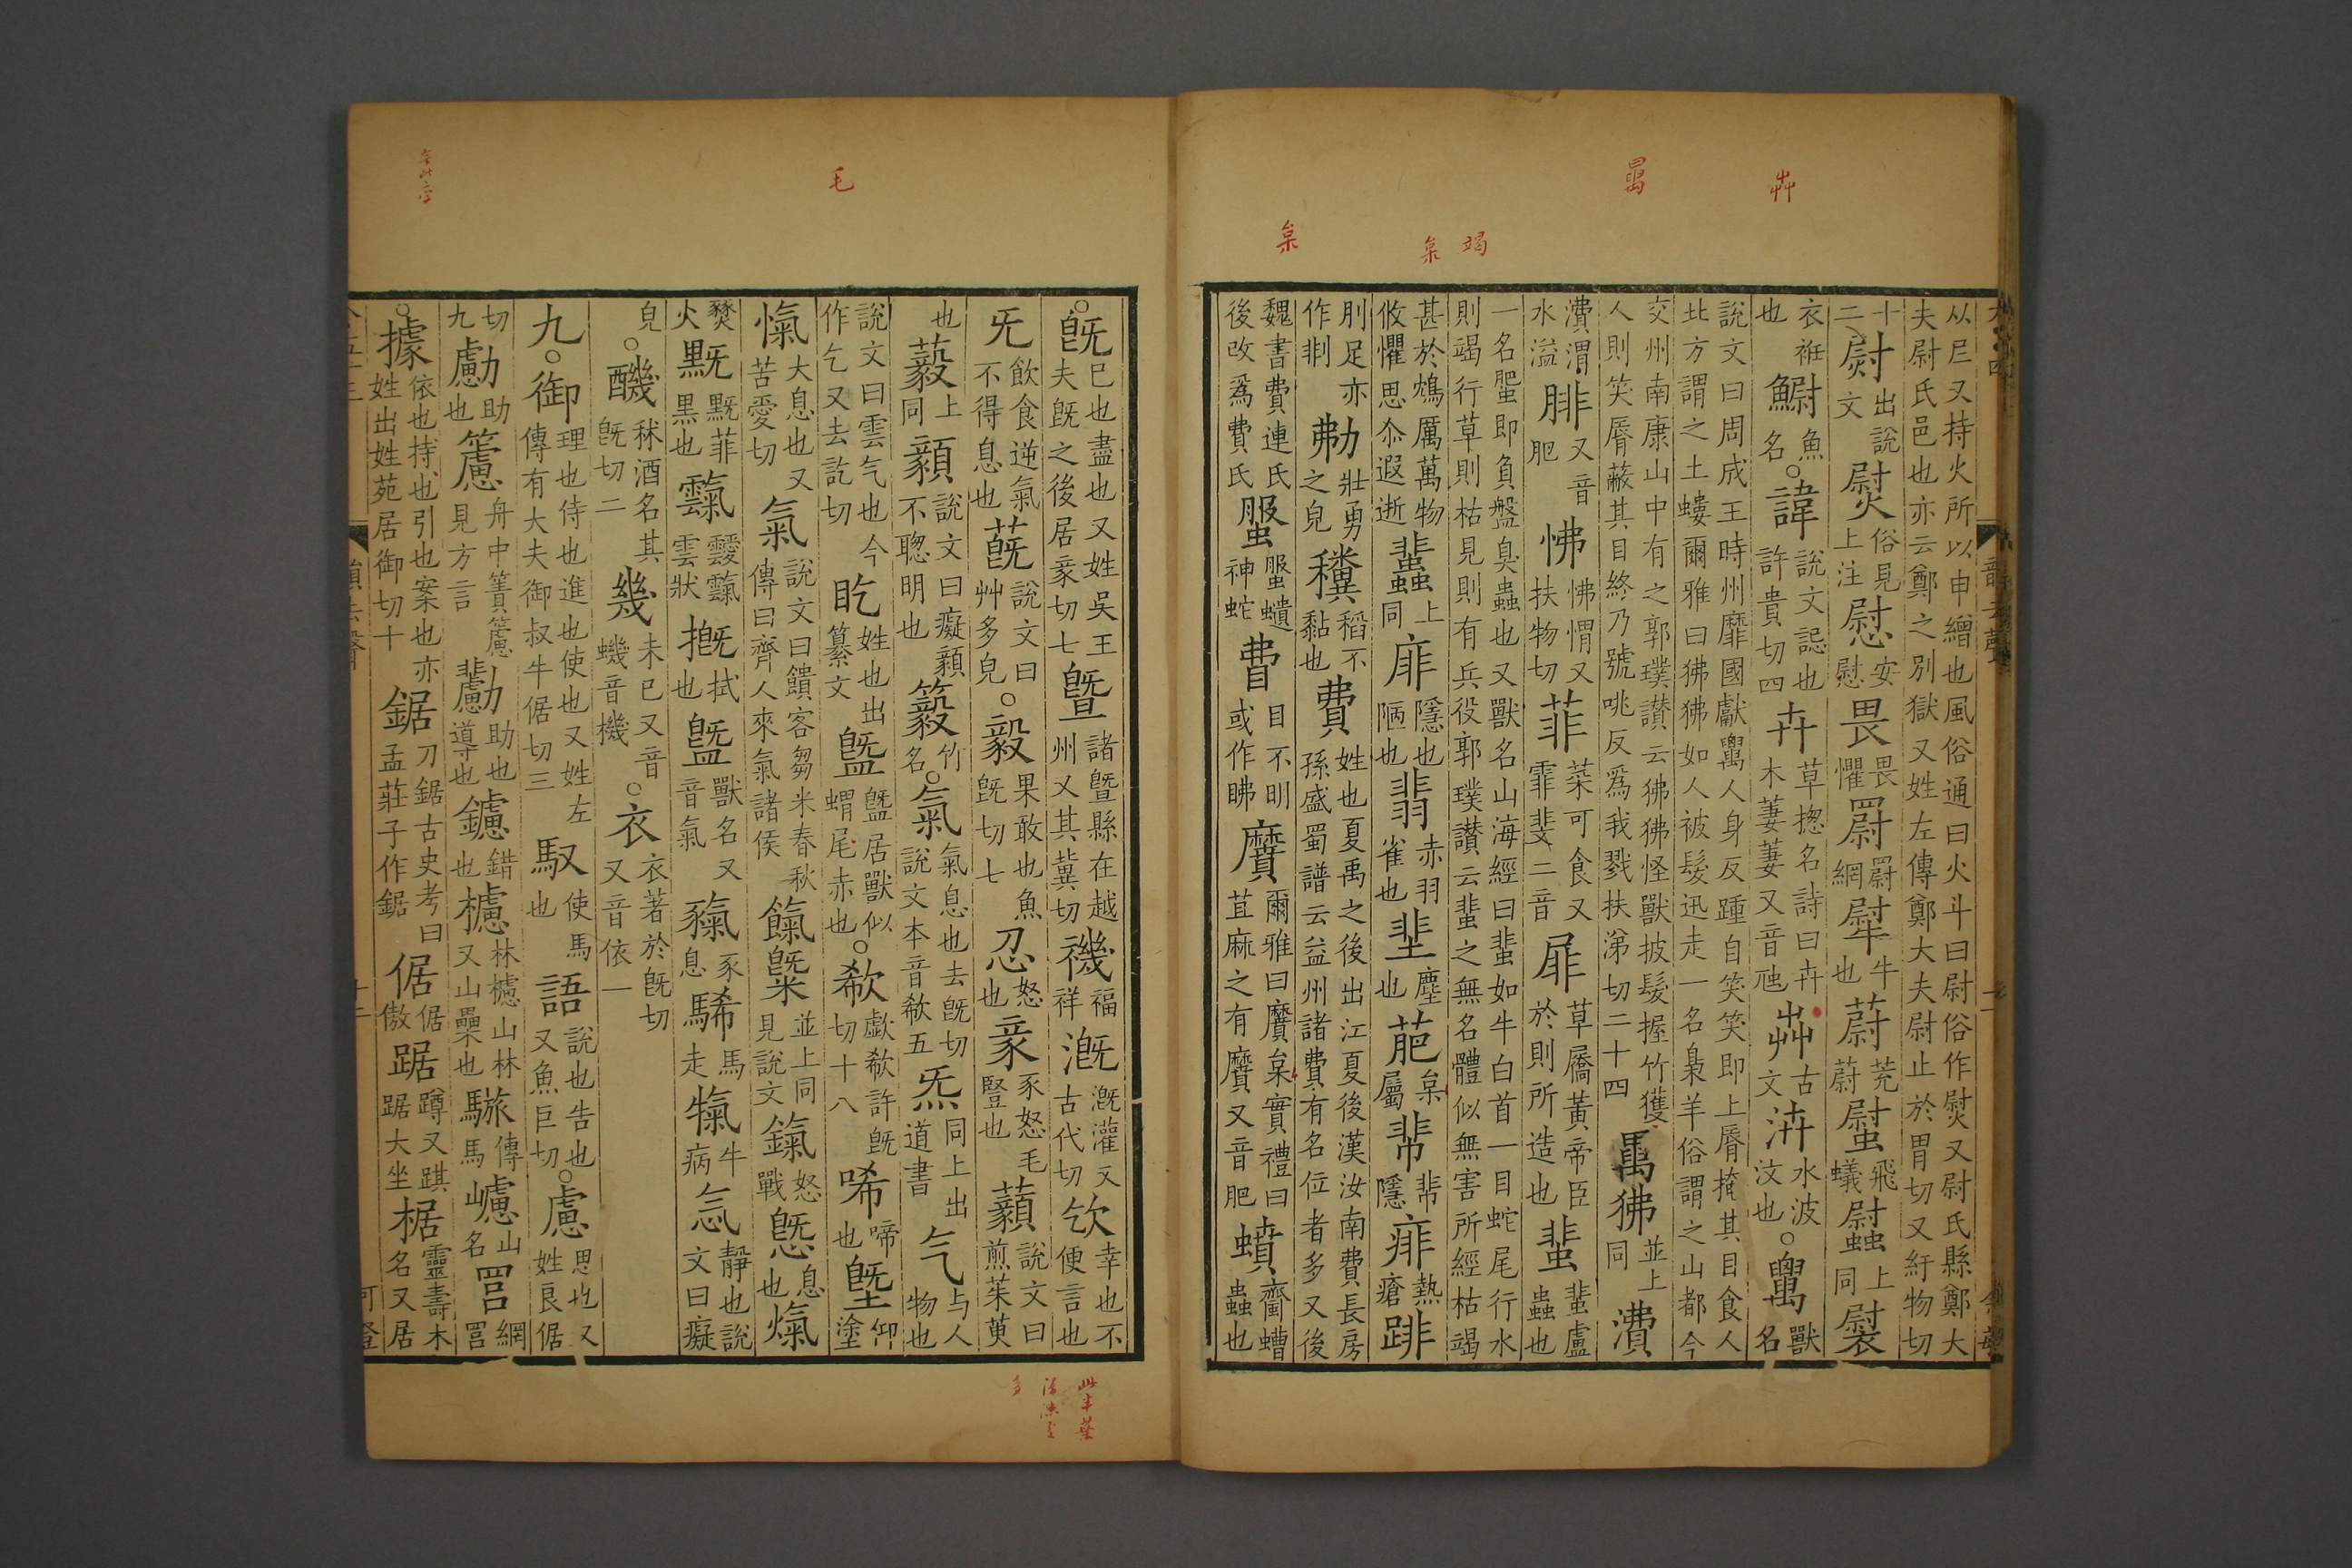 从𡰥又持火所以申繒也風俗通曰火斗曰尉俗作熨又尉氏縣鄭大夫尉氏邑也亦云鄭之別獄又姓左傳鄭大夫尉止於胃切又紆物切
十二 出說文熨俗見上注慰安慰畏畏懼罻罻網犚牛也蔚茺蔚螱飛蟻 上同褽
衣衽也䲁魚名○諱說文誋也許貴切四卉草揔名詩曰卉木萋萋又音虺芔古文泋水波汶也○ 獸名
說文曰周成王時州靡國獻 人身反踵自笑笑即上脣掩其目食人北方謂之土螻爾雅曰狒狒如人被髮迅走一名梟羊俗謂之山都今
交州南康山中有之郭璞讃云狒狒怪獸披髮握竹獲人則笑脣蔽其目終乃號咷反爲我戮扶涕切二十四 狒並上同㵒
㵒渭水溢腓又音肥怫怫愲又扶物切菲菜可食又霏斐二音屝草屩黃帝臣於則所造也蜚蜚盧蟲也
一名蜰即負盤臭蟲也又獸名山海經曰蜚如牛白首一目蛇尾行水則竭行草則枯見則有兵役郭璞讃云蜚之無名體似無害所經枯竭
甚於鴆厲萬物攸懼思尒遐逝 上同厞隱也陋也翡赤羽雀也 塵也萉枲屬 隱痱熱瘡
刖足亦作剕 壯勇之皃 稻不黏也費姓也夏禹之後出江夏後漢汝南費長房孫盛蜀譜云益州諸費有名位者多又後
魏書費連氏後改爲費氏 蟦神蛇 目不明或作 黂爾雅曰黂枲實禮曰苴麻之有黂又音肥蟦䘌螬蟲也
○旣已也盡也又姓吳王夫旣之後居豙切七曁諸曁縣在越州又其冀切禨福祥漑漑灌又古代切 幸也不便言也
旡飲食逆氣不得息也蔇說文曰艸多皃○毅果敢也魚旣切七忍怒也豙豕怒毛豎也 說文曰煎茱萸
也藙上同顡說文曰癡顡不聰明也 竹名○氣氣息也去旣切說文本音欷五炁同上出道書气与人物也
說文曰雲气也今作乞又去訖切盵姓也出纂文 居獸似蝟尾赤也○欷歔欷許旣切十八唏啼也塈仰塗
愾大息也又苦愛切氣說文曰饋客芻米春秋傳曰齊人來氣諸侯餼 並上同見說文鎎怒戰 息也熂
燹火黖黖菲黑也靅靉靅雲狀摡拭也 獸名又音氣 豕息 馬走 牛病忥靜也說文曰癡
皃○ 秫酒名其旣切二幾未已又音蟣音機○衣衣著於旣切又音依一
九○御理也侍也進也使也又姓左傳有大夫御叔牛倨切三馭使馬也語說也告也又魚巨切○慮思也又姓良倨
切九勴助也 舟中簀 見方言 助也導也鑢錯也櫖林櫖山林又山櫐也 傳馬 山名 網
○據依也持也引也案也亦姓出姓苑居御切十鋸刀鋸古史考曰孟莊子作鋸倨倨傲踞蹲又踑踞大坐椐靈壽木名又居
卝
竭
枲
枲
毛
此半葉